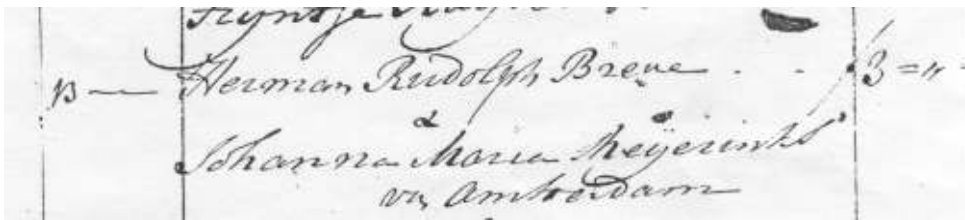 Trijntje
13 — Herman Rudolph Breve . . ƒ 3 = " -
&
Johanna Maria Meijerink
van Amsterdam